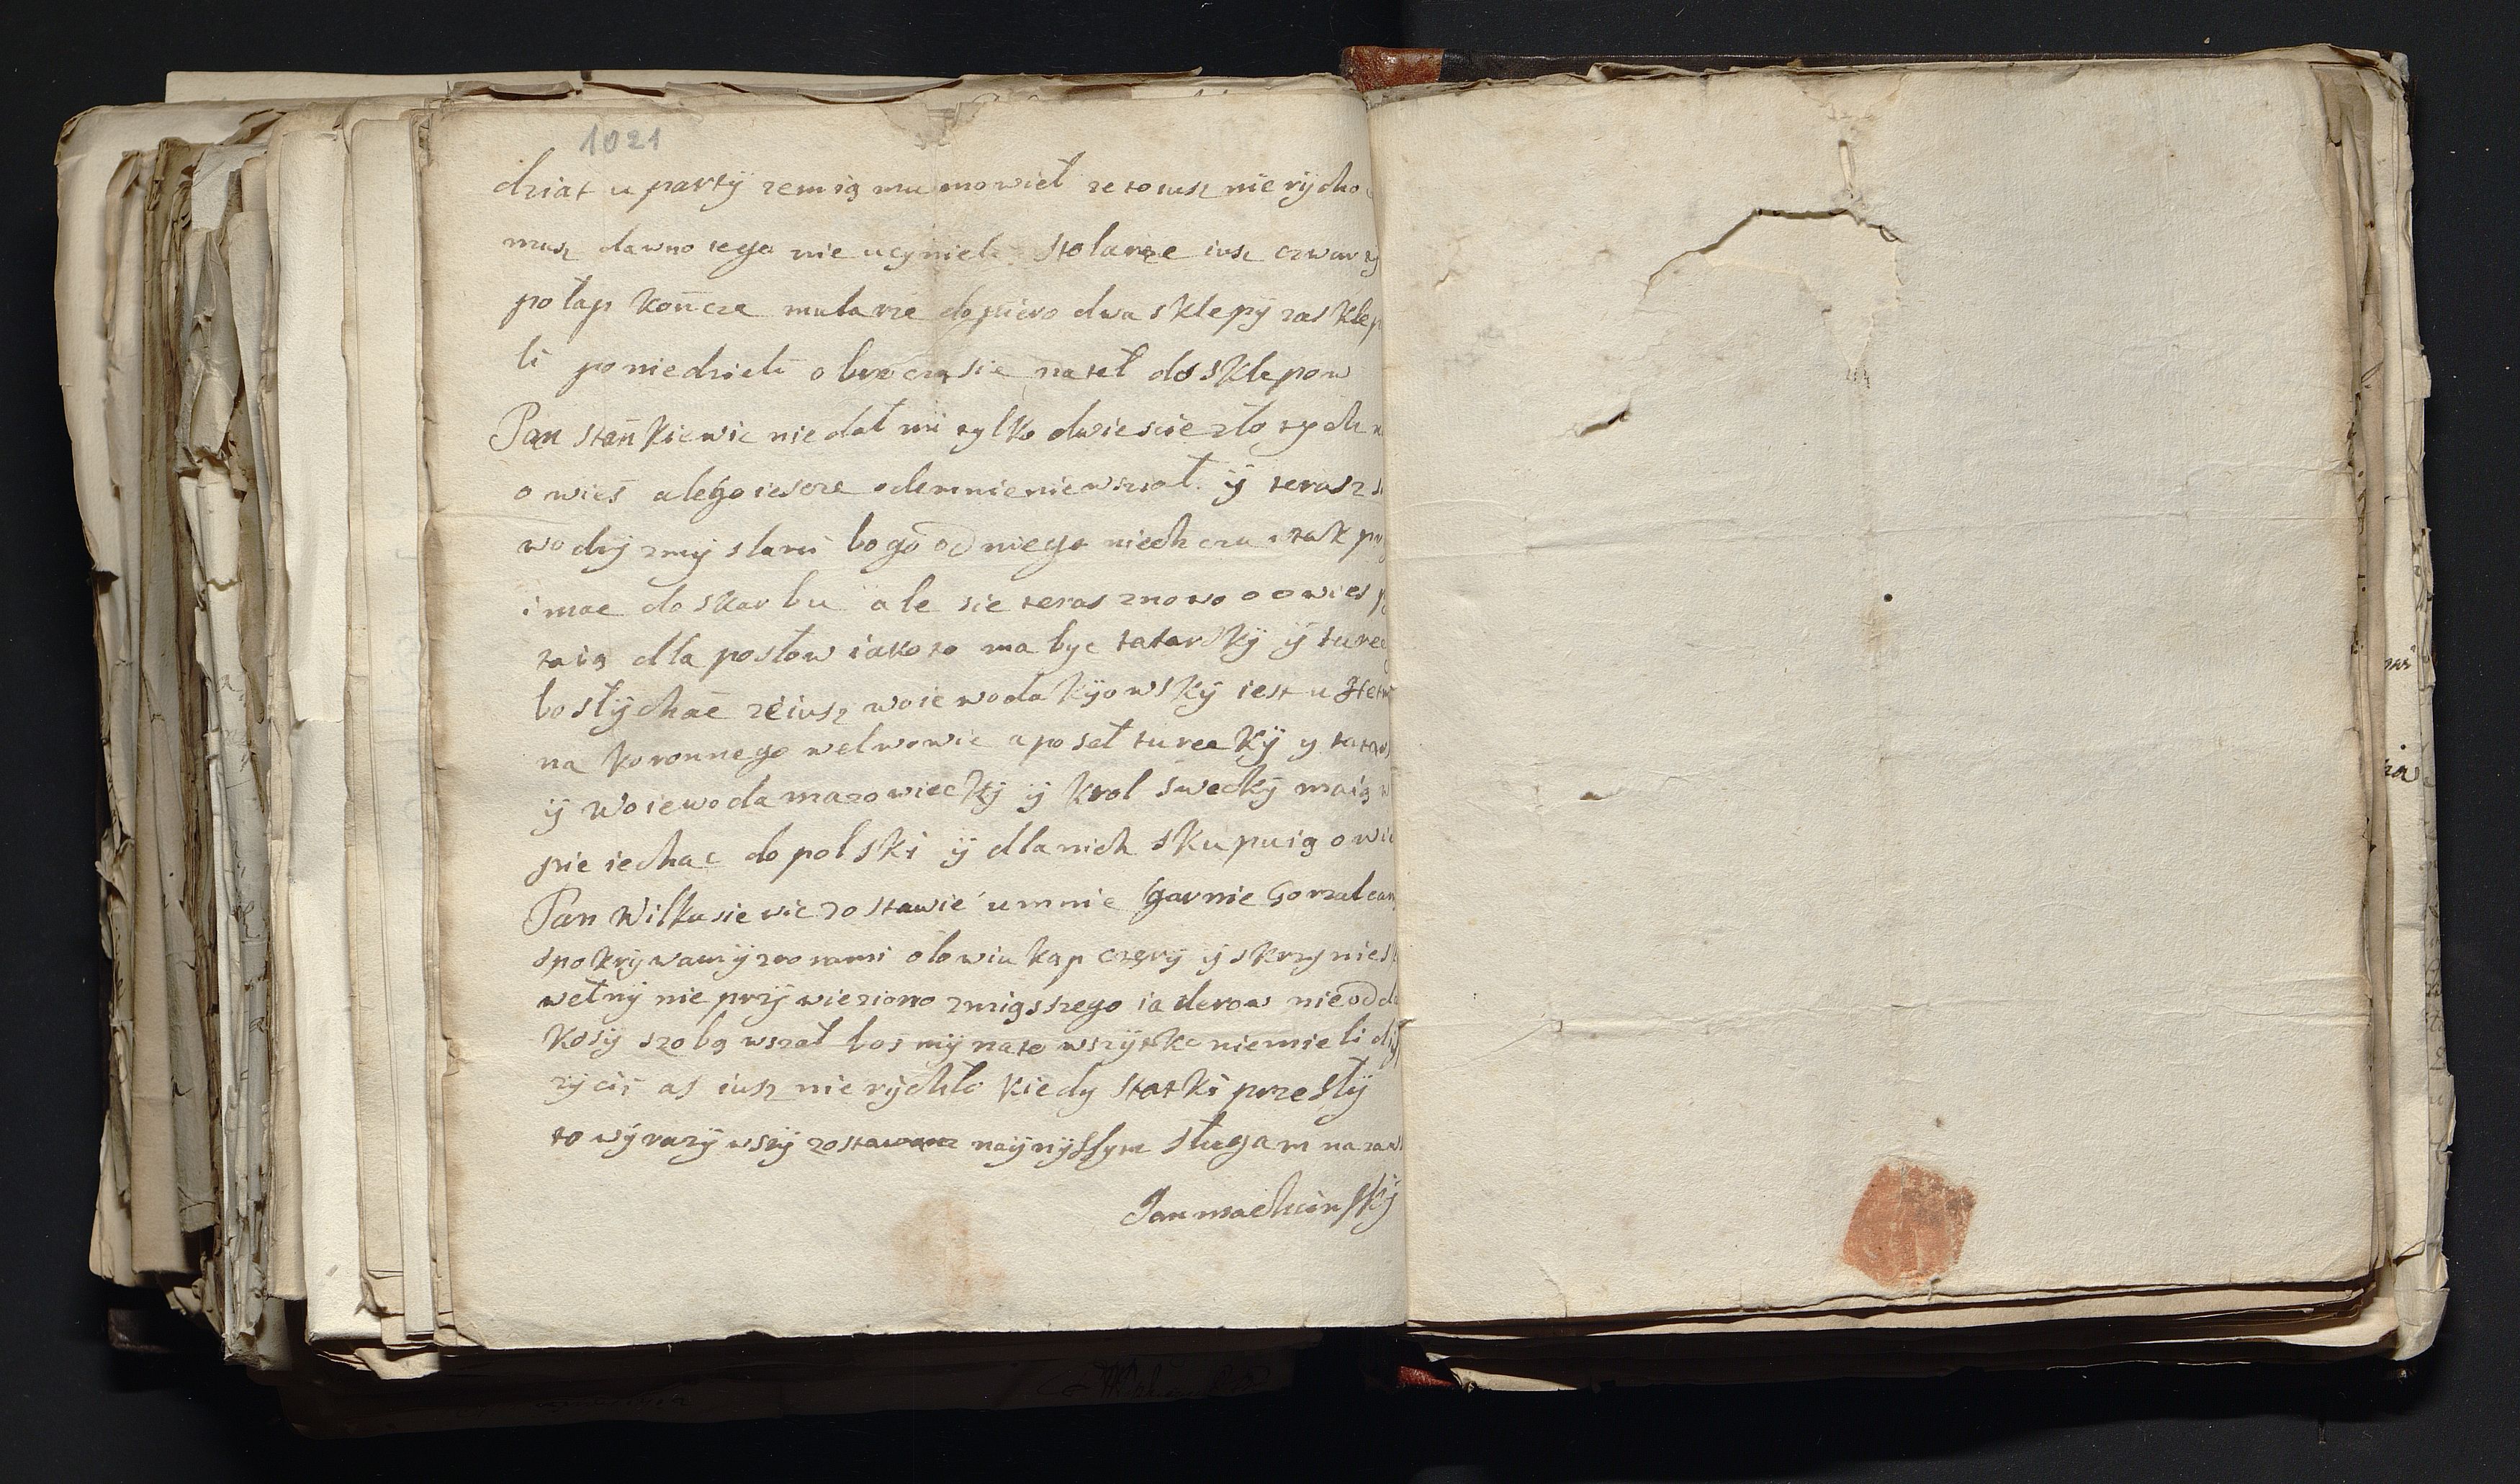 1021
dziat uparty zemią mu mowieł ze to iusz nie rÿcho
musz dawno tego nie ucynieli Stolarze iusz czwarty
połap Kończe mularze dopiero dwa sklepÿ zasklep
li poniedzieli obroczą sie nateł do sklepow
Pan Stańkiewic nie dał mi tylko dwiescie złotych
owies alegoiescze odemnieniewsział ÿ terasz
wodÿ zmÿ slami bogo od niego niech czu i tak
imae do skarbu ale sie teras znowo o owies
taią dla posłow iako to ma byc tatarskÿ ÿ turec
bo słÿchać zeiusz woiewoda Kÿowskÿ iest u Hetm
na Koronnego welwowie a poseł tureckÿ y tatars
ÿ Woiewoda mazowieckÿ ÿ Krol swecky maią
pie iechac do polski ÿ dla nich skupuią owi
Pan Wilkusiewic zostawieł umnie garnie Gorzalcan
spokrÿwamÿ zrorami ołowiu kap cztery ÿ skrzynies
wełnÿ nie przÿwieziono zmiąsszego iaderow nieodd
Kosÿ szobą wsział bos mÿ nato wszÿtko niemieli
zÿcis as iusz nierÿchło kiedy statki przesłÿ
to wÿrazÿwsÿ zostawam naÿnÿssym sługam nazaw
Jan machcinskÿ